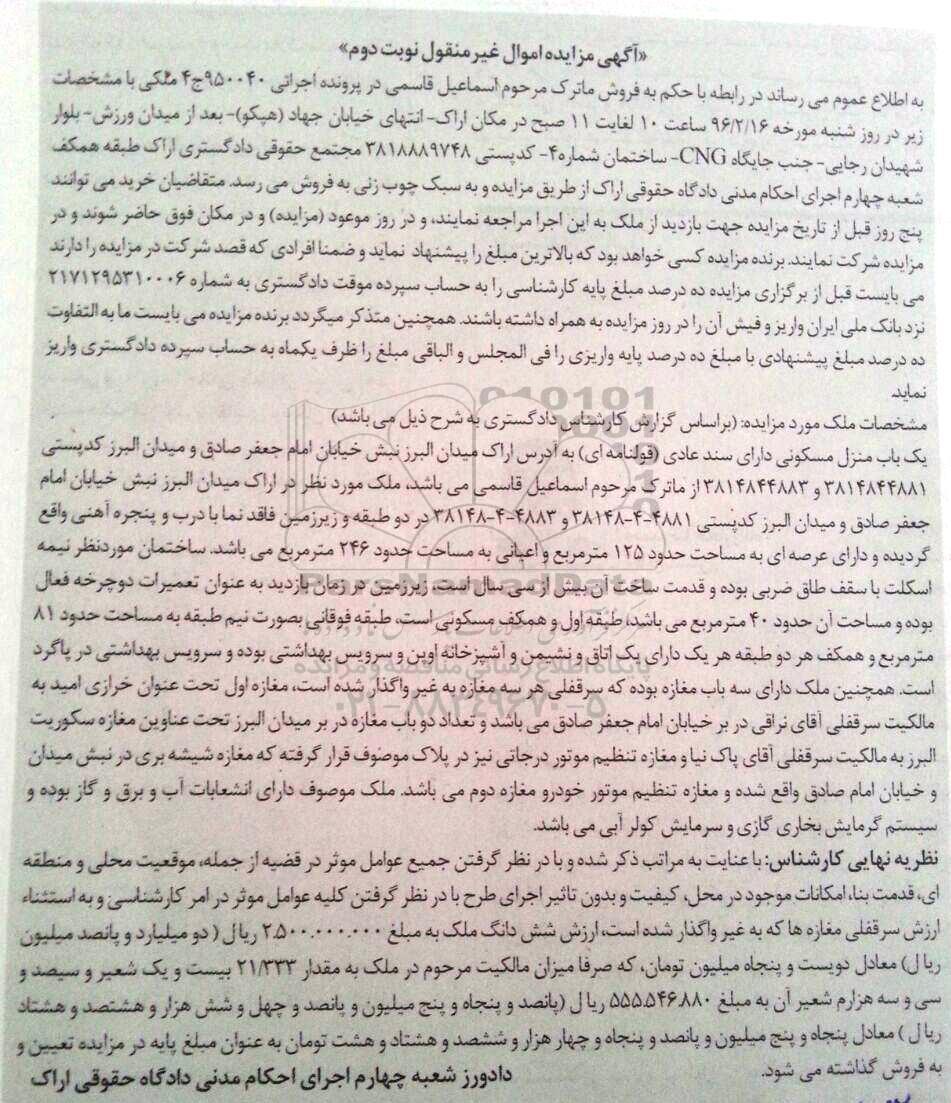 «آگهی مزایده اموال غیر منقول نوبت دوم»
به اطلاع عموم می رساند در رابطه با حکم به فروش ماترک مرحوم اسماعیل قاسمی در پرونده اجرائی ۹۵۰۰۴۰ج۴ ملکی با مشخصات
زیر در روز شنبه مورخه ۹۶/۲/۱۶ ساعت ۱۰ لغایت ۱۱ صبح در مکان اراک- انتهای خیابان جهاد (هپکو)- بعد از میدان ورزش- بلوار
شهیدان رجایی- جنب جایگاه CNG- ساختمان شماره۴- کدپستی ۳۸۱۸۸۸۹۷۴۸ مجتمع حقوقی دادگستری اراک طبقه همکف
شعبه چهارم اجرای احکام مدنی دادگاه حقوقی اراک از طریق مزایده و به سبک چوب زنی به فروش می رسد. متقاضیان خرید می توانند
پنج روز قبل از تاریخ مزایده جهت بازدید از ملک به این اجرا مراجعه نمایند، و در روز موعود (مزایده) و در مکان فوق حاضر شوند و در
مزایده شرکت نمایند. برنده مزایده کسی خواهد بود که بالاترین مبلغ را پیشنهاد نماید و ضمنا افرادی که قصد شرکت در مزایده را دارند
می بایست قبل از برگزاری مزایده ده درصد مبلغ پایه کارشناسی را به حساب سپرده موقت دادگستری به شماره ۲۱۷۱۲۹۵۳۱۰۰۰۶
نزد بانک ملی ایران واریز و فیش آن را در روز مزایده به همراه داشته باشند. همچنین متذکر میگردد برنده مزایده می بایست ما به التفاوت
ده درصد مبلغ پیشنهادی با مبلغ ده درصد پایه واریزی را فی المجلس و الباقی مبلغ را ظرف یکماه به حساب سپرده دادگستری واریز
نماید.
مشخصات ملک مورد مزایده: (براساس گزارش کارشناس دادگستری به شرح ذیل می باشد)
یک باب منزل مسکونی دارای سند عادی (قولنامه ای) به آدرس اراک میدان البرز نبش خیابان امام جعفر صادق و میدان البرز کدپستی
۳۸۱۴۸۴۴۸۸۱ و ۳۸۱۴۸۴۴۸۸۳ از ماترک مرحوم اسماعیل قاسمی می باشد، ملک مورد نظر در اراک میدان البرز نبش خیابان امام
جعفر صادق و میدان البرز کدپستی ۴۸۸۱-۴-۳۸۱۴۸ و ۴۸۸۳-۴-۳۸۱۴۸ در دو طبقه و زیرزمین فاقد نما با درب و پنجره آهنی واقع
گردیده و دارای عرصه ای به مساحت حدود ۱۲۵ مترمربع و اعیانی به مساحت حدود ۲۴۶ مترمربع می باشد. ساختمان موردنظر نیمه
اسکلت با سقف طاق ضربی بوده و قدمت ساخت آن بیش از سی سال است، زیرزمین در زمان بازدید به عنوان تعمیرات دوچرخه فعال
بوده و مساحت آن حدود ۴۰ مترمربع می باشد، طبقه اول و همکف مسکونی است، طبقه فوقانی بصورت نیم طبقه به مساحت حدود ۸۱
مترمربع و همکف هر دو طبقه هر یک دارای یک اتاق و نشیمن و آشپزخانه اوپن و سرویس بهداشتی بوده و سرویس بهداشتی در پاگرد
است. همچنین ملک دارای سه باب مغازه بوده که سرقفلی هر سه مغازه به غیر واگذار شده است، مغازه اول تحت عنوان خرازی امید به
مالکیت سرقفلی آقای نراقی در بر خیابان امام جعفر صادق می باشد و تعداد دو باب مغازه در بر میدان البرز تحت عناوین مغازه سکوریت
البرز به مالکیت سرقفلی آقای پاک نیا و مغازه تنظیم موتور درجاتی نیز در پلاک موصوف قرار گرفته که مغازه شیشه بری در نبش میدان
و خیابان امام صادق واقع شده و مغازه تنظیم موتور خودرو مغازه دوم می باشد. ملک موصوف دارای انشعابات آب و برق و گاز بوده و
سیستم گرمایش بخاری گازی و سرمایش کولر آبی می باشد.
نظریه نهایی کارشناس: با عنایت به مراتب ذکر شده و با در نظر گرفتن جمیع عوامل موثر در قضیه از جمله، موقعیت محلی و منطقه
ای، قدمت بنا، امکانات موجود در محل، کیفیت و بدون تاثیر اجرای طرح با در نظر گرفتن کلیه عوامل موثر در امر کارشناسی و به استثناء
ارزش سرقفلی مغازه ها که به غیر واگذار شده است، ارزش شش دانگ ملک به مبلغ ۲.۵۰۰.۰۰۰.۰۰۰ ریال ( دو میلیارد و پانصد میلیون
ریال) معادل دویست و پنجاه میلیون تومان، که صرفا میزان مالکیت مرحوم در ملک به مقدار ۲۱/۳۳۳ بیست و یک شعیر و سیصد و
سی و سه هزارم شعیر آن به مبلغ ۵۵۵.۵۴۶.۸۸۰ ریال (پانصد و پنجاه و پنج میلیون و پانصد و چهل و شش هزار و هشتصد و هشتاد
ریال ) معادل پنجاه و پنج میلیون و پانصد و پنجاه و چهار هزار و ششصد و هشتاد و هشت تومان به عنوان مبلغ پایه در مزایده تعیین و
به فروش گذاشته می شود.
دادورز شعبه چهارم اجرای احکام مدنی دادگاه حقوقی اراک
ParsNamadData
پایگاه اطلاع رسانی مناقصه و مزایده
۰۲۱-۸۸۳۴۹۶۷۰-۵